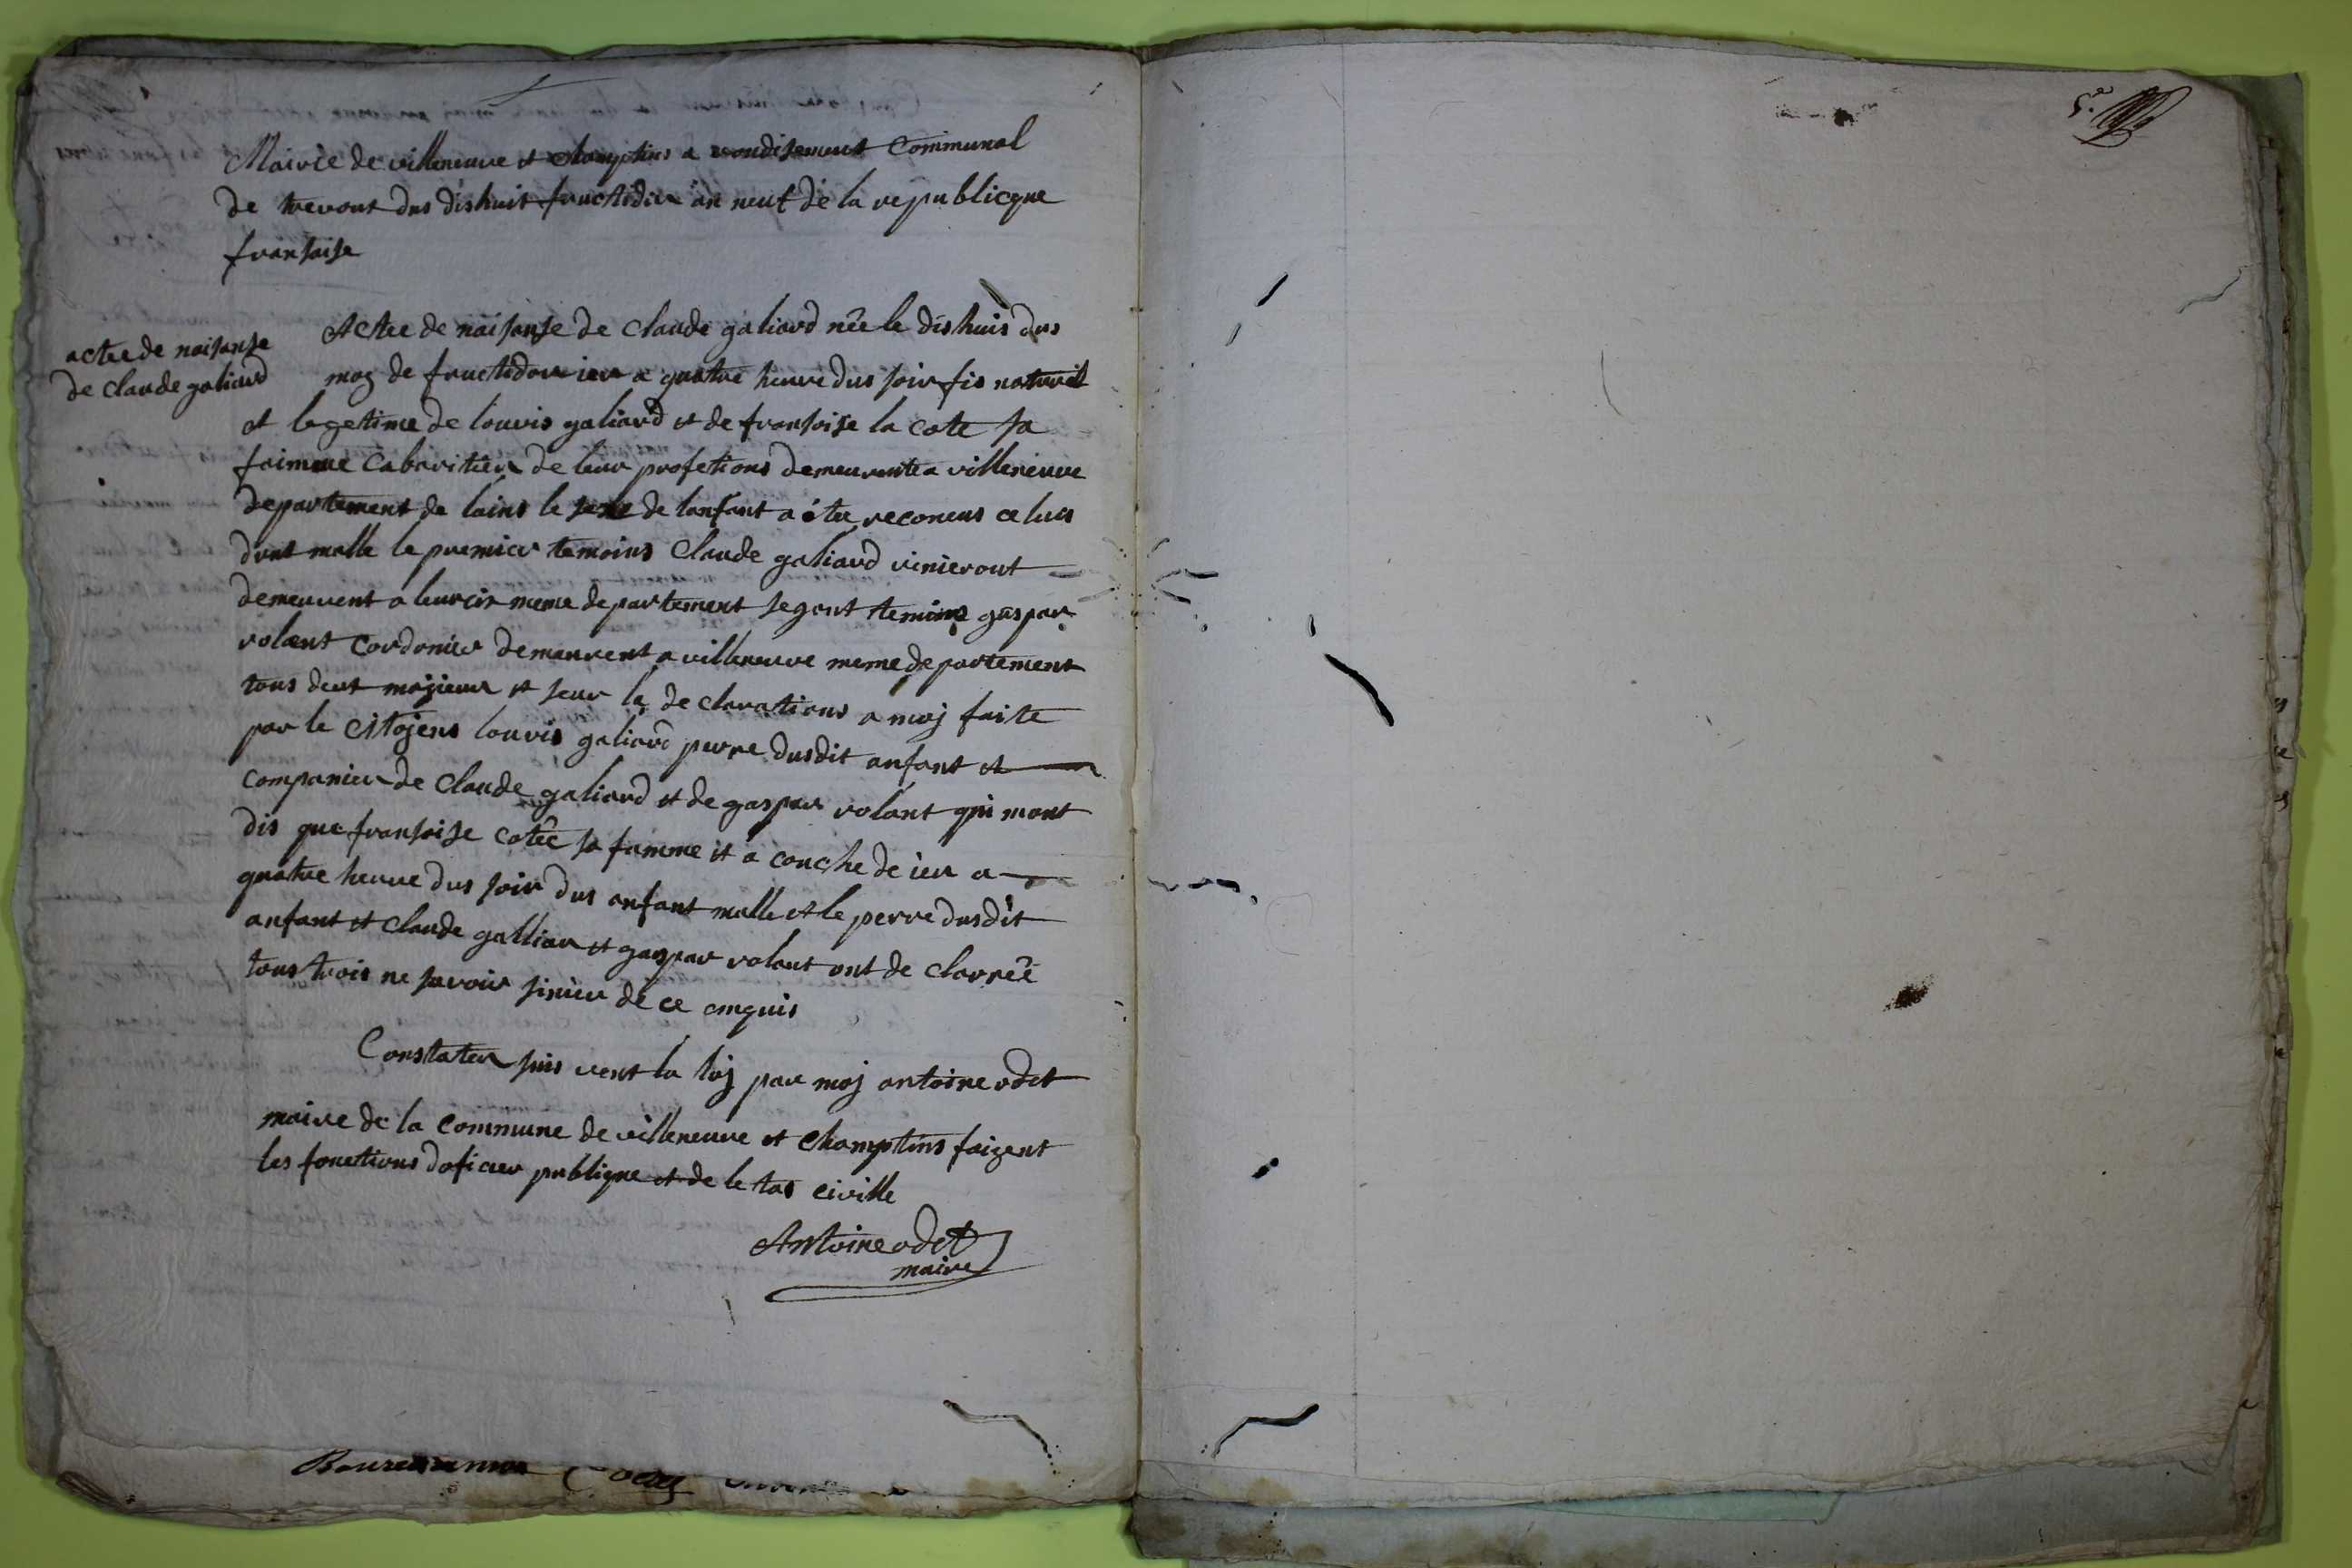 5.e
Mairie de villeneuve et Champtins a rondisement Communal
de trevout dus dishuit fructidier an neuf de la republicque
fransaise
actee de naisanse
de claude galiard
Actee de naisanse de claude galiard née le dishuis dus
moy de fructidor ier a quatre heure dus soir fis naturel
et legetime de louvis galiard et de fransoise la cote sa
faimme Cabaritier de leur profetions demeurente a villeneuve
departement de lains le sexe de lanfant a étee reconeus celuis
dunt malle le premier temoins Claude galiard vinieront
demeurent a leurcir meme departement segont temins gaspar
volant Cordonier demeurent a villeneuve meme departement
tous deut majieur et seur la declarations a moy faite
par le citojens louvis galiard perre dusdit anfant et
companier de Claude galiard et de gaspar volant qui mont
dis que fransoise cotêe sa famme et a couche de ier a
quatre heure dus soir dus anfant malle et le perre dusdit
anfant et claude galliar et gaspar volant ont de clarréé
tous trois ne savoir sinier de ce anquis
Constater suis vent la loy par moj antoine odet
maire de la commune de villeneuve et Champtins faizent
les fonctions doficier publique et de le tas civille
Antoine odet
maire